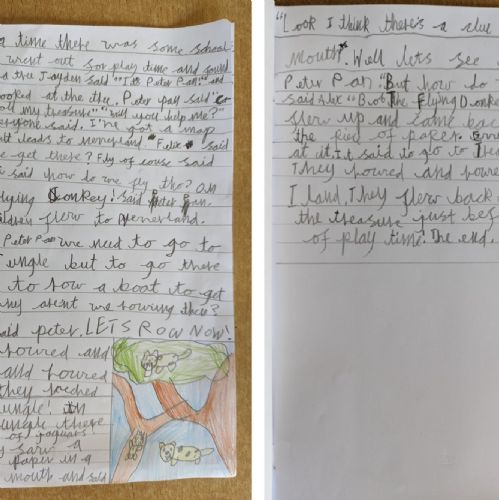 a time there was some school
went out for play time and found
a tree Jayden said "It's Peter Pan" and
looked at the tree. Peter pan said
my treasure" "will you help me?"
said, I've got a map
leads to neverland "Felix" said
we get there? Fly of course said
said how do we fly tho? Om
flying Donkey! said Peter Pan.
flew to neverland.
Peter Pan we need to go to
Jungle but to go there
to row a boat to get
why arent we rowing there?
said peter. LETS ROW NOW!
rowred and
and rowred
they reched
ungle! In
ungle there
of jaguars
saw a
paper in a
mouth and said
"Look I think there's a clue
mouth". Well lets see
Peter Pan. "But how do
said Alex "But The Flying Donke
flew up and came bac
the pied of paper.
at it. It said to go to
They rowred and rowre
I land, They flew back
the treasure just bef
of play time. The end.